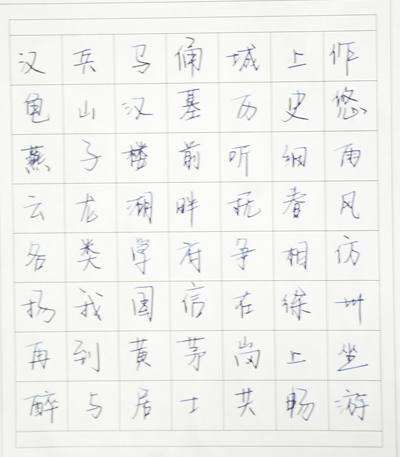 汉兵马俑城上作
龟山汉墓历史悠
燕子楼前听细雨
云龙湖畔抚春风
各类学府争相仿
扬我国信在徐州
再到黄茅岗上坐
醉与居士共畅游